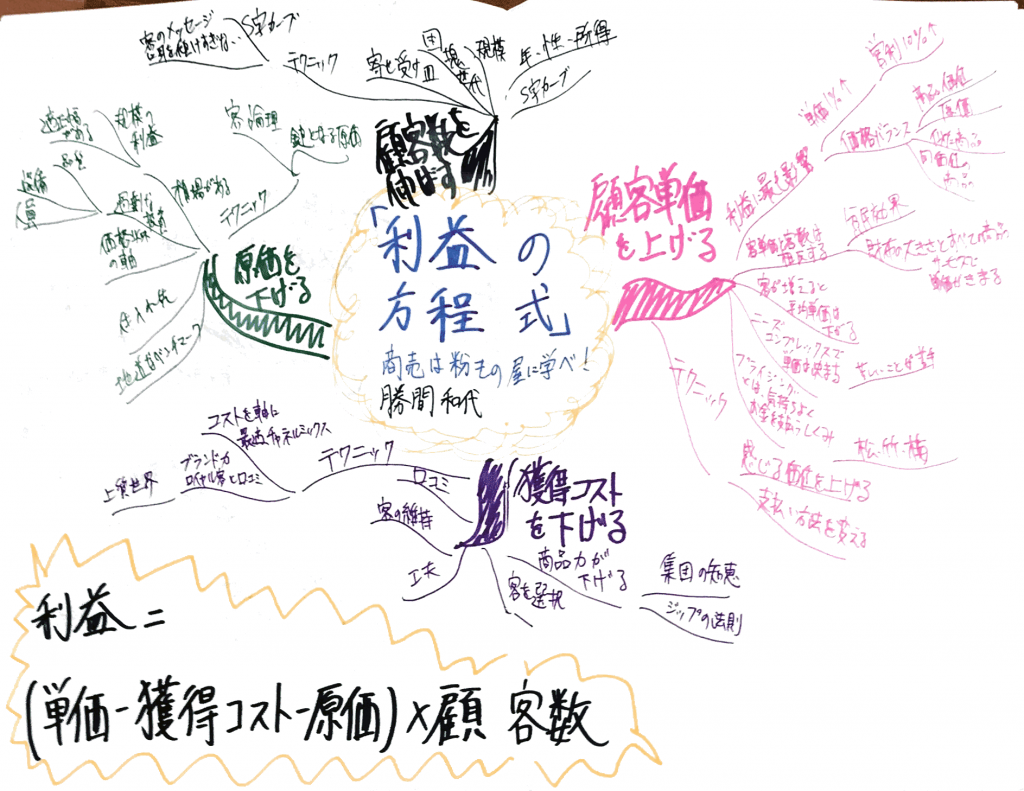 「利益の
方程式」
商売は粉もの屋に学べ!
勝間和代
顧客単価
を上げる
利益に最も影響
単価1%↑
営利10%↑
価格バランス
商品価値
原価
似た商品
同価値の
商品
客単価と客数は
相反する
有民効果
財布の大きさとすべての商品
サービスで
単価がきまる
客が増えると
平均単価は
下がる
ニーズ
コンプレックスで
単価は決まる
甘いことは苦手
プライシング
とは、気持ちよく
お金を払うしくみ
松・竹・梅
テクニック
感じる価値を上げる
支払い方法を変える
獲得コスト
を下げる
商品力が
下げる
集団の知恵
ジップの法則
客を選択
工夫
客の維持
口コミ
テクニック
コストを軸に
最適チャネルミックス
ブランド力
ロイヤル客と口コミ
上質世界
原価を
下げる
テクニック
鍵となる原価
客、倫理
相場がある
規模の
利益
適正幅
がある
品質
設備
人員
価格以外
の軸
仕入れ先
地道なベンチマーク
顧客数を
伸ばす
テクニック
S字カーブ
客のメッセージ
客を受す皿
団
塊
世
代
規模
年、性、所得
S字カーブ
利益=
(単価-獲得コスト-原価)×顧客数